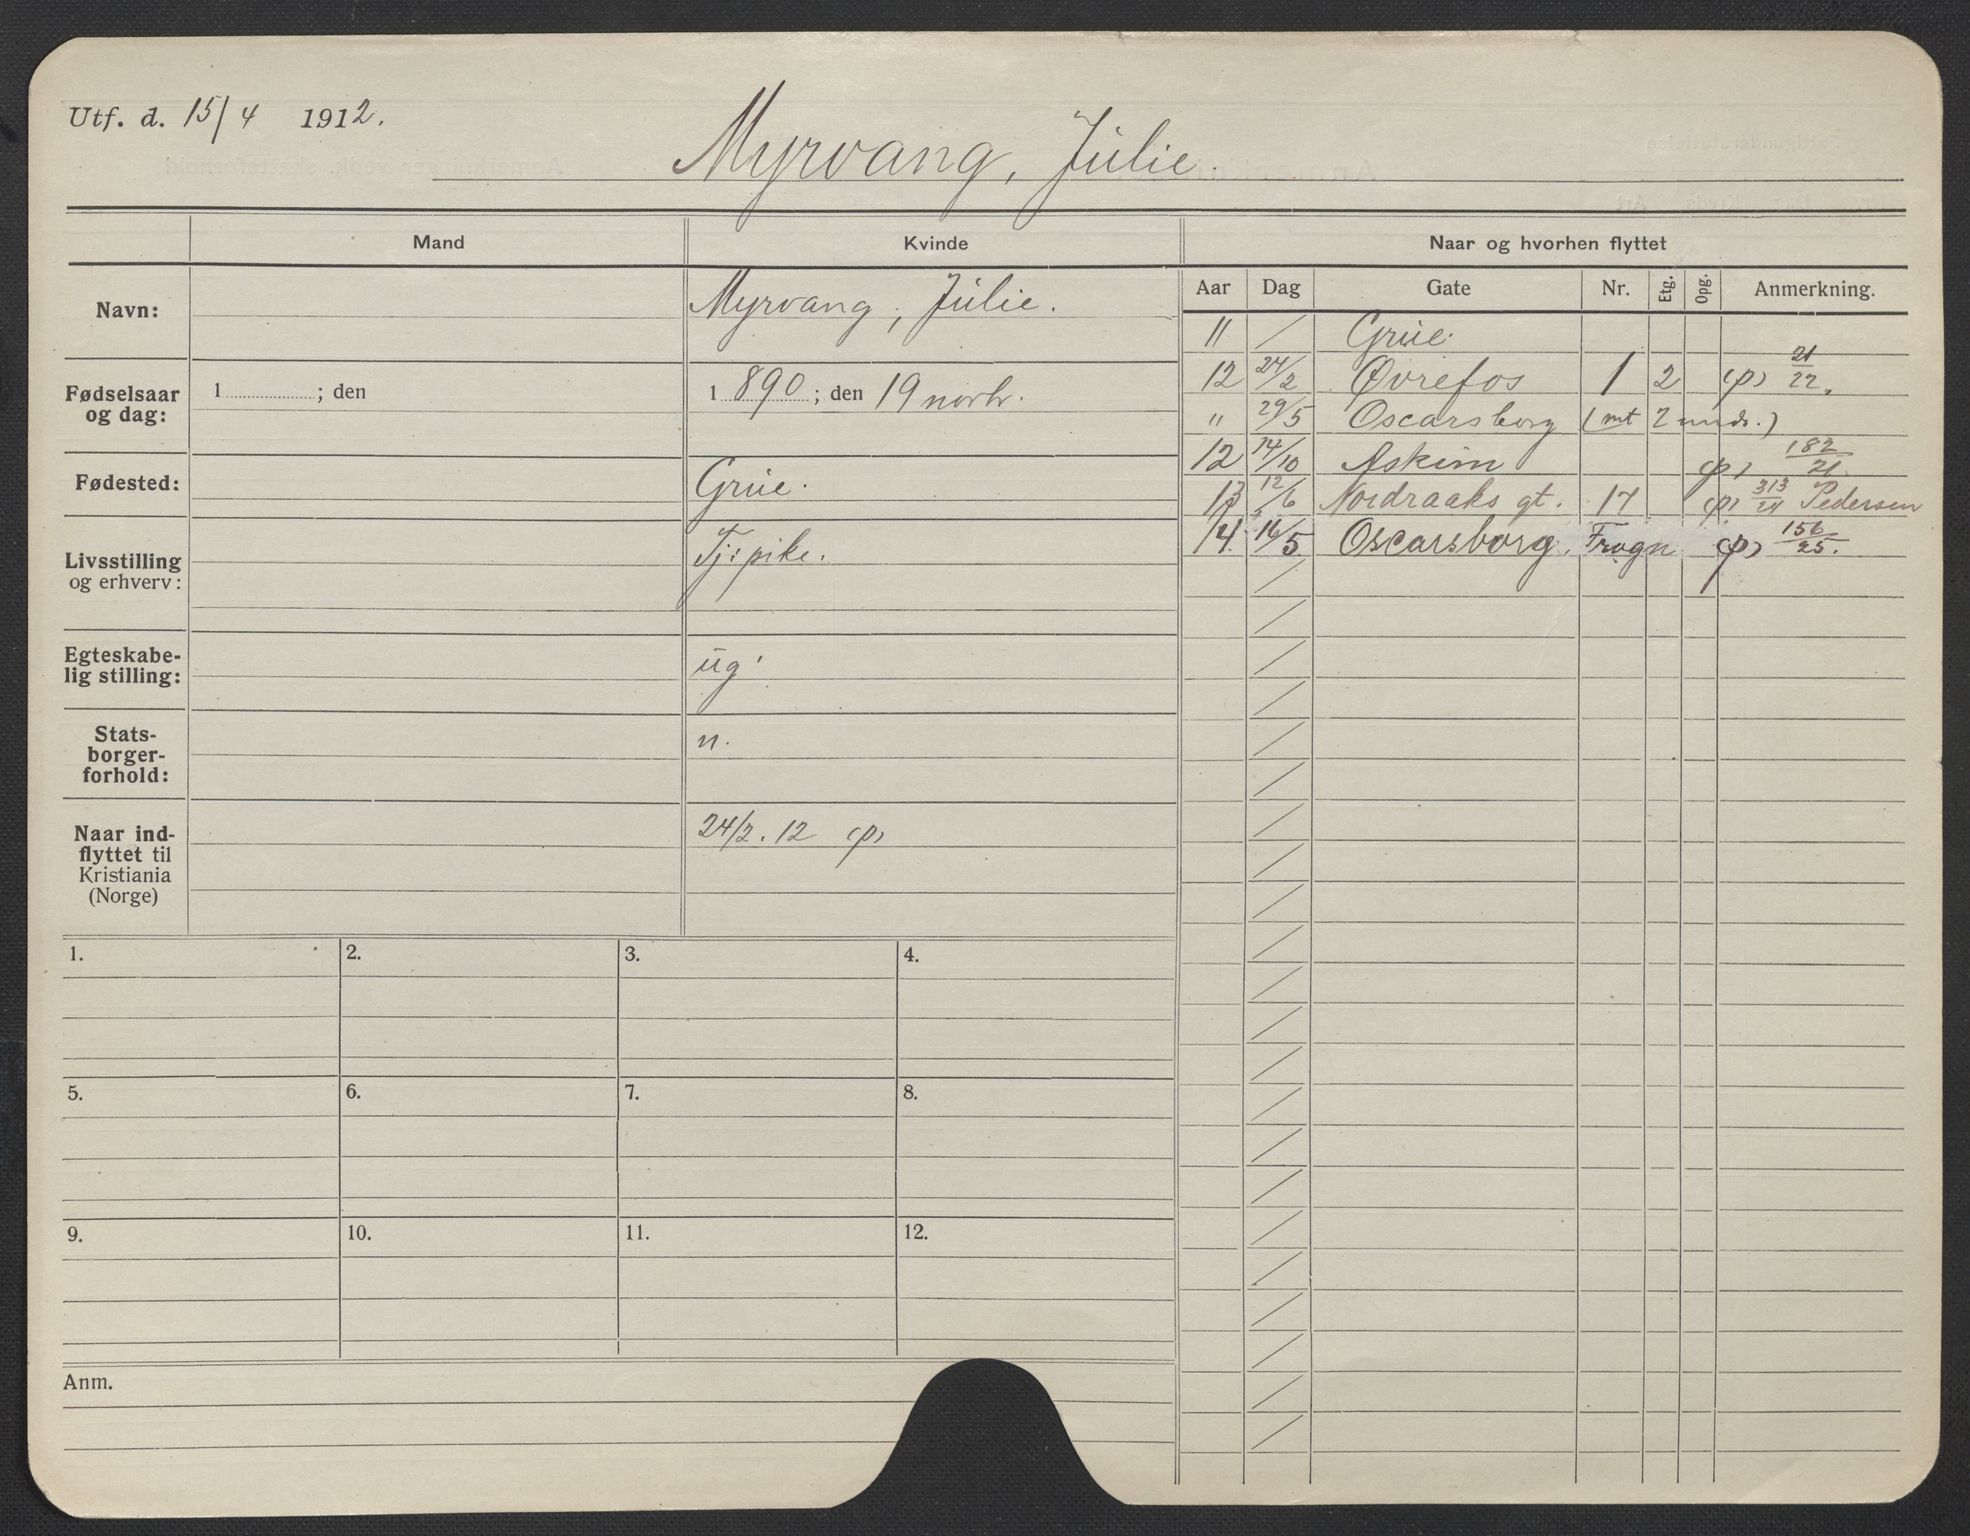 Utf. d. 15/4 1912.
Myrvang, Julie.
Mand
Kvinde
Naar og hvorhen flyttet
Navn:
Myrvang, Julie.
Fødselsaar og dag:
1 ; den
1 890 ; den 19 novbr.
Fødested:
Grue.
Livsstilling og erhverv:
Tj: pike.
Egteskabe-
lig stilling:
ug.
Stats-
borger-
forhold:
n.
Naar ind-
flyttet til
Kristiania
(Norge)
24/2. 12 (p)
Aar Dag Gate Nr. Etg. Opg. Anmerkning.
11 / Grue.
12 24/2 Øvrefos 1 2 (p) 21/22.
" 29/5 Oscarsborg (mt 7 mndr.)
12 14/10 Askim (p) 182/21.
13 12/6 Nordraaks gt. 17 (p) 313/24 Pedersen
14. 16/5 Oscarsborg, Frogn (p) 156/25.
1. 2. 3. 4.
5. 6. 7. 8.
9. 10. 11. 12.
Anm.